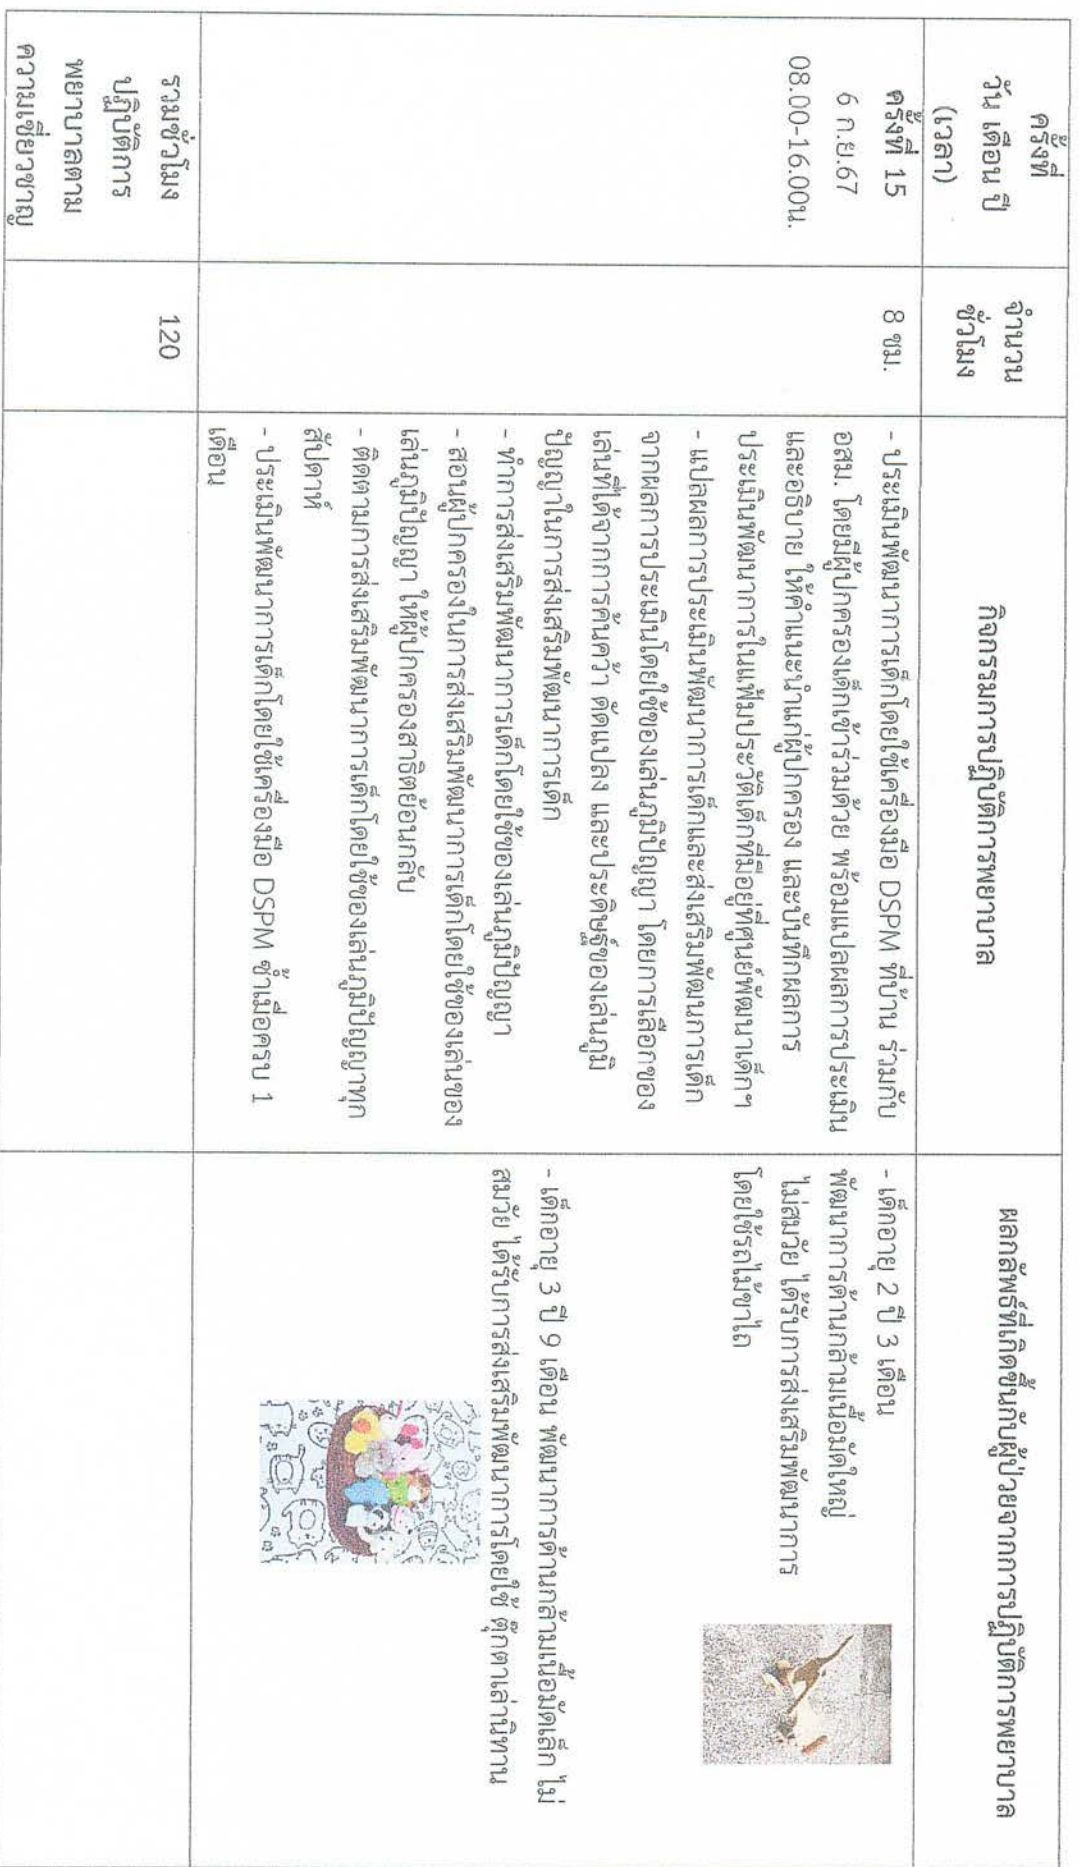 ครั้งที่
วัน เดือน ปี
(เวลา)
จำนวน
ชั่วโมง
กิจกรรมการปฏิบัติการพยาบาล
ผลลัพธ์ที่เกิดขึ้นกับผู้ป่วยจากการปฏิบัติการพยาบาล
ครั้งที่ 15
6 ก.ย.67
08.00-16.00น.
8 ชม.
- ประเมินพัฒนาการเด็กโดยใช้เครื่องมือ DSPM ที่บ้าน ร่วมกับ
อสม. โดยมีผู้ปกครองเด็กเข้าร่วมด้วย พร้อมแปลผลการประเมิน
และอธิบาย ให้คำแนะนำแก่ผู้ปกครอง และบันทึกผลการ
ประเมินพัฒนาการในแฟ้มประวัติเด็กที่มีอยู่ที่ศูนย์พัฒนาเด็กฯ
- แปลผลการประเมินพัฒนาการเด็กและส่งเสริมพัฒนการเด็ก
จากผลการประเมินโดยใช้ของเล่นภูมิปัญญา โดยการเลือกของ
เล่นที่ได้จากการค้นคว้า ดัดแปลง และประดิษฐ์ของเล่นภูมิ
ปัญญาในการส่งเสริมพัฒนาการเด็ก
- ทำการส่งเสริมพัฒนาการเด็กโดยใช้ของเล่นภูมิปัญญา
- สอนผู้ปกครองในการส่งเสริมพัฒนาการเด็กโดยใช้ของเล่นของ
เล่นภูมิปัญญา ให้ผู้ปกครองสาธิตย้อนกลับ
- ติดตามการส่งเสริมพัฒนาการเด็กโดยใช้ของเล่นภูมิปัญญาทุก
สัปดาห์
- ประเมินพัฒนาการเด็กโดยใช้เครื่องมือ DSPM ซ้ำเมื่อครบ 1
เดือน
- เด็กอายุ 2 ปี 3 เดือน
พัฒนาการด้านกล้ามเนื้อมัดใหญ่
ไม่สมวัย ได้รับการส่งเสริมพัฒนาการ
โดยใช้รถไม้ขาไถ
- เด็กอายุ 3 ปี 9 เดือน พัฒนาการด้านกล้ามเนื้อมัดเล็ก ไม่
สมวัย ได้รับการส่งเสริมพัฒนาการโดยใช้ ตุ๊กตาเล่านิทาน
รวมชั่วโมง
ปฏิบัติการ
พยาบาลตาม
ความเชี่ยวชาญ
120